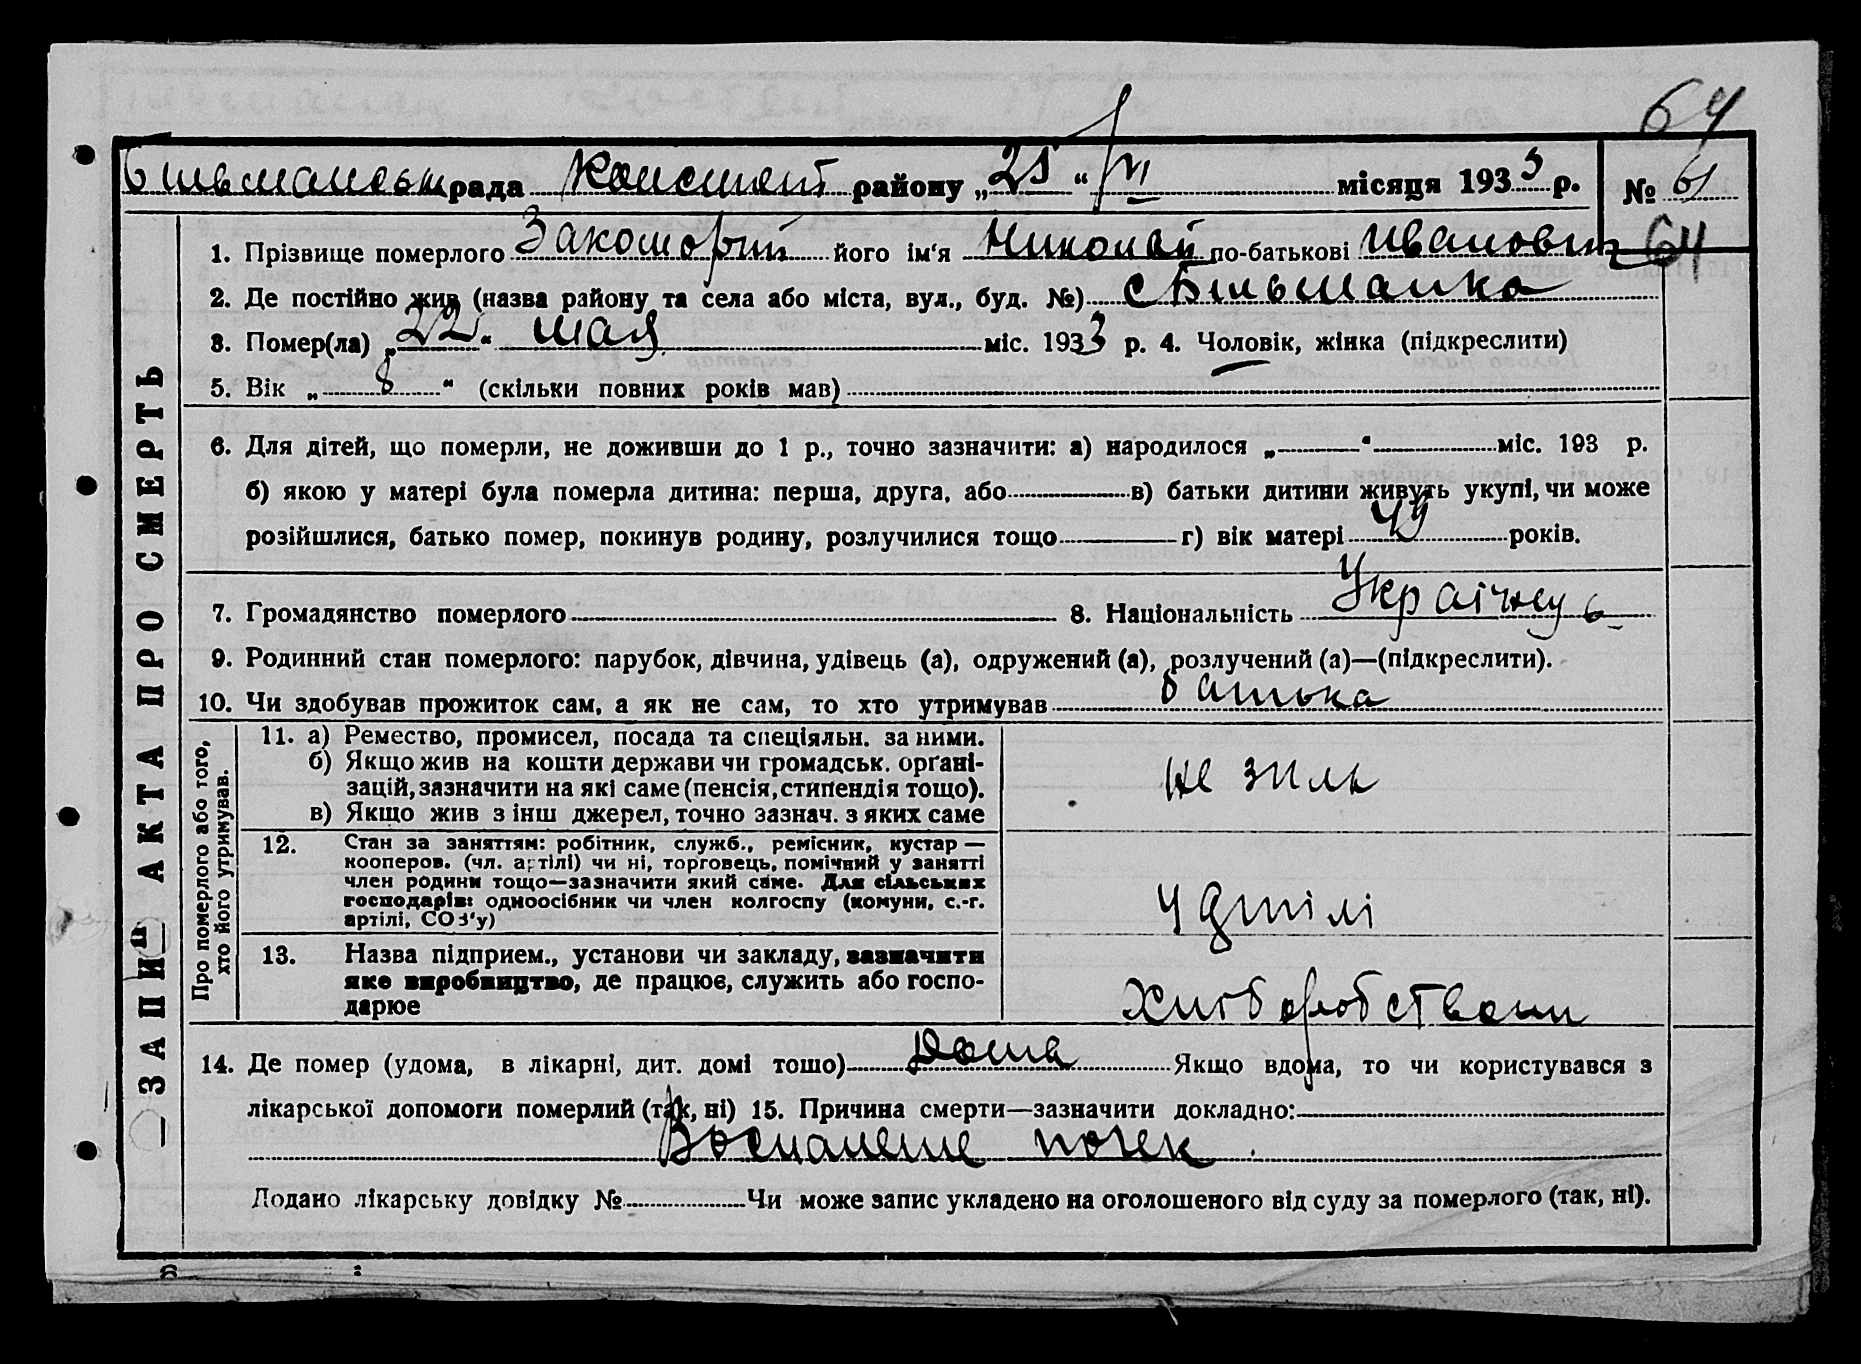 64
рада району „25“ місяця 1933 р. № 61
64
1. Прізвище померлого його ім‘я Николай по-батькові Иванович
2. Де постійно жив (назва району та села або міста, вул., буд. №)
3. Помер(ла) „22“ мая міс. 1933 р. 4. Чоловік, жінка (підкреслити)
5. Вік „8“ (скільки повних років мав)
6. Для дітей, що померли, не доживши до 1 р., точно зазначити: а) народилося „ “ міс. 193 р.
б) якою у матері була померла дитина: перша, друга, або в) батьки дитини живуть укупі, чи може
розійшлися, батько помер, покинув родину, розлучилися тощо г) вік матері 49 років.
7. Громадянство померлого 8. Національність
9. Родинний стан померлого: парубок, дівчина, удівець (а), одружений (а), розлучений (а)—(підкреслити).
10. Чи здобував прожиток сам, а як не сам, то хто утримував батька
ЗАПИС АКТА ПРО СМЕРТЬ
Про померлого або того,
хто його утримував.
11. а) Ремество, промисел, посада та спеціяльн. за ними.
б) Якщо жив на кошти держави чи громадськ. орґані-
зацій, зазначити на які саме (пенсія, стипендія тощо).
в) Якщо жив з інш джерел, точно зазнач. з яких саме
12. Стан за заняттям: робітник, служб., ремісник, кустар —
кооперов. (чл. артілі) чи ні, торговець, помічний у занятті
член родини тощо—зазначити який саме. Для сільських
господарів: одноосібник чи член колгоспу (комуни, с.-г.
артілі, СОЗ‘у)
у артілі
13. Назва підприєм., установи чи закладу, зазначити
яке виробництво, де працює, служить або госпо-
дарює
14. Де помер (удома, в лікарні, дит. домі тощо) Дома Якщо вдома, то чи користувався з
лікарської допомоги померлий (так, ні) 15. Причина смерти—зазначити докладно:
Воспаление почек
Додано лікарську довідку № Чи може запис укладено на оголошеного від суду за померлого (так, ні).